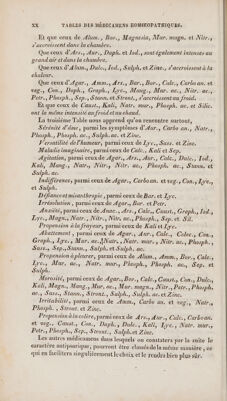 XX TABLES DES MÉDICAMENS HOMŒOPATHIQUES.
Et que ceux de Alum., Bar., Magnesia, Mur. magn. et Nitr.,
s'accroissent dans la chambre.
Que ceux d'Ars., Aur., Daph. et Iod., sont également intenses au
grand air et dans la chambre.
Que ceux d'Alum., Dulc., Iod., Sulph. et Zinc., s'accroissent à la
chaleur.
Que ceux d'Agar., Amm., Ars., Bar., Bor., Calc., Carbo an. et
veg., Con., Daph., Graph., Lyc., Mang., Mur. ac., Nitr. ac.,
Petr., Phosph., Sep., Stann. et Stront., s'accroissent au froid.
Et que ceux de Caust., Kali, Natr. mur., Phosph. ac. et Silic.
ont la même intensité au froid et au chaud.
La troisième Table nous apprend qu'on rencontre surtout,
Sérénité d'âme, parmi les symptômes d'Aur., Carbo an., Natr.,
Phosph., Phosph. ac., Sulph. ac. et Zinc.
Versatilité de l'humeur, parmi ceux de Lyc., Sass. et Zinc.
Maladie imaginaire, parmi ceux de Calc., Kali et Sep.
Agitation, parmi ceux de Agar., Ars., Aur., Calc., Dulc., Iod.,
Kali, Mang., Natr., Nitr., Nitr. ac., Phosph. ac., Stann. et
Sulph.
Indifférence, parmi ceux de Agar., Carbo an. et veg., Con., Lyc.,
et Sulph.
Défiance et misanthropie, parmi ceux de Bar. et Lyc.
Irrésolution, parmi ceux de Agar., Bar. et Petr.
Anxiété, parmi ceux de Amc., Ars., Calc., Caust., Graph., Iod.,
Lyc., Magn., Natr., Nitr., Nitr. ac., Phosph., Sep. et Sil.
Propension à la frayeur, parmi ceux de Kali et Lyc.
Abattement, parmi ceux de Agar., Aur., Calc., Coloc., Con.,
Graph., Lyc., Mur. ac., Natr., Natr. mur., Nitr. ac., Phosph.,
Sass., Sep., Stann., Sulph. et Sulph. ac.
Propension à pleurer, parmi ceux de Alum., Amm., Bor., Calc.,
Lyc., Mur. ac., Natr. mur., Phosph., Phosph. ac., Sep. et
Sulph.
Morosité, parmi ceux de Agar., Bor., Calc., Caust., Con., Dulc.,
Kali, Magn., Mang., Mur. ac., Mur. magn., Nitr., Petr., Phosph.
ac., Sass., Stann., Stront., Sulph., Sulph. ac. et Zinc.
Irritabilité, parmi ceux de Amm., Carbo an. et veg., Natr.,
Phosph., Stront. et Zinc.
Propension à la colère, parmi ceux de Ars., Aur., Calc., Carbo an.
et veg., Caust., Con., Daph., Dulc., Kali, Lyc., Natr. mur.,
Petr., Phosph., Sep., Stront., Sulph. et Zinc.
Les autres médicamens dans lesquels on constatera par la suite le
caractère antipsorique, pourront être classés de la même manière, ce
qui en facilitera singulièrement le choix, et le rendra bien plus sûr.